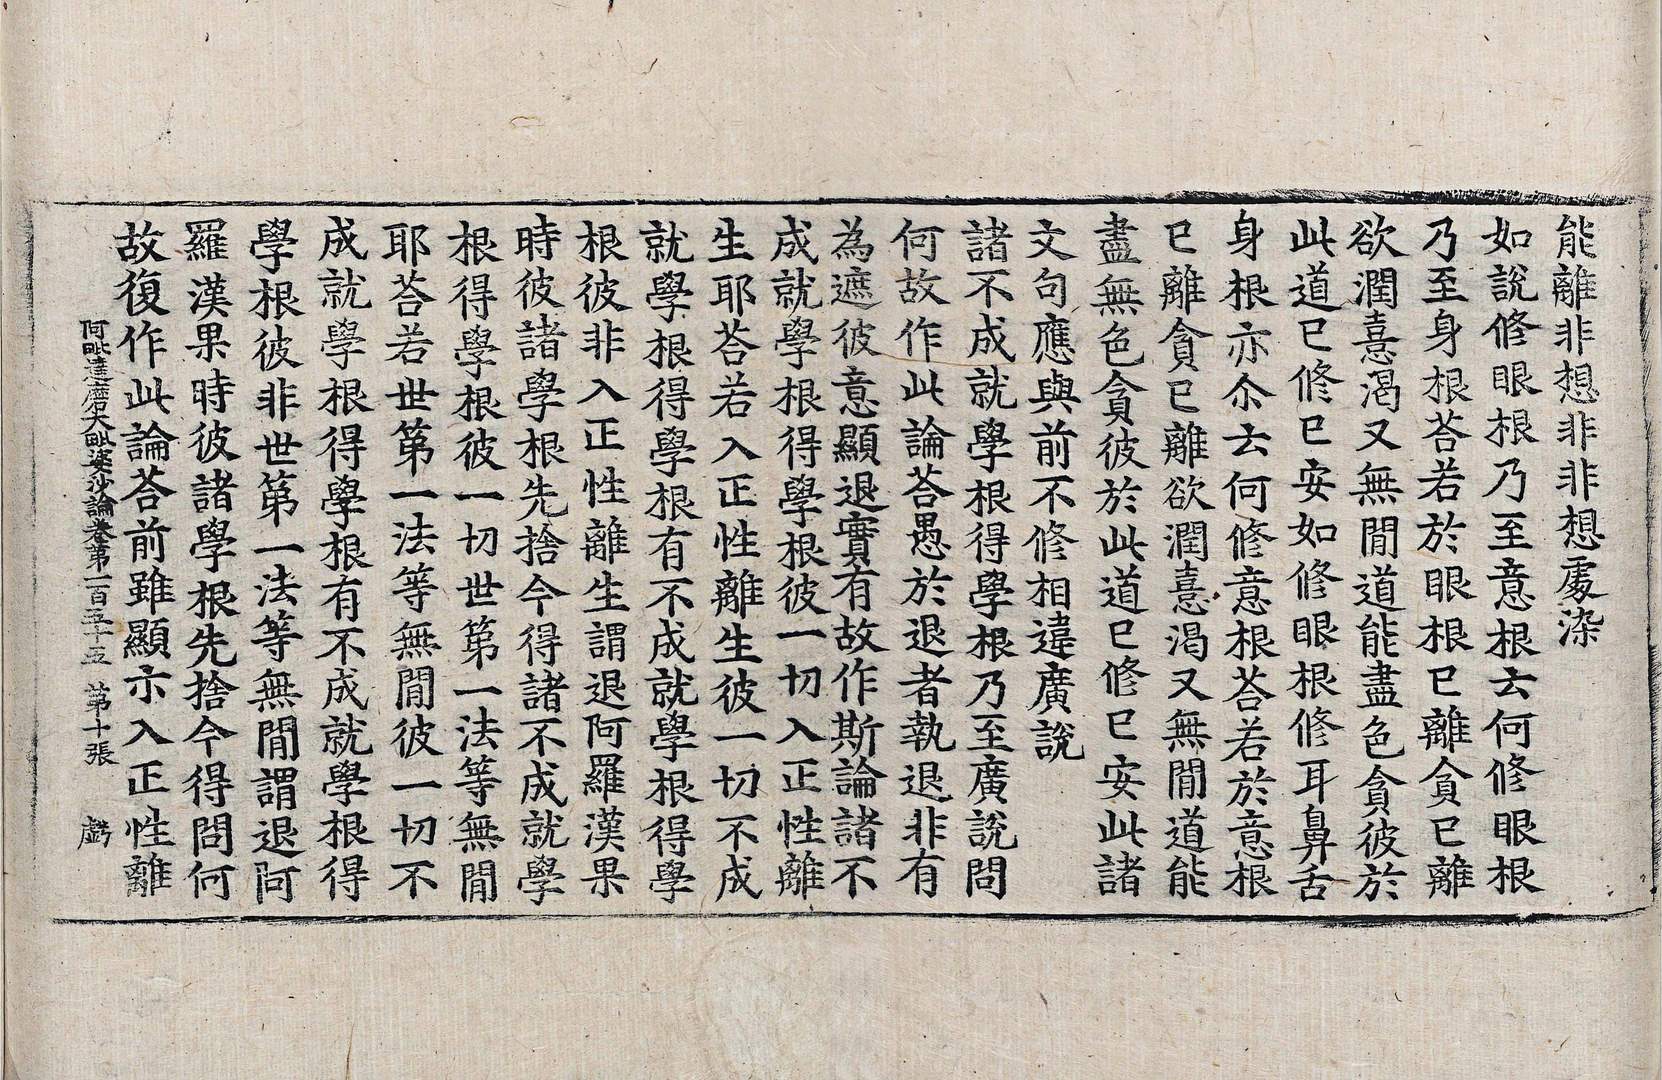 能離非想非非想處染
如說修眼根乃至意根去何修眼根
乃至身根荅若於眼根已離貪已離
欲潤憙渴又無閒道能盡色貪彼於
此道已修已安如修眼根修耳鼻舌
身根亦尒去何修意根荅若於意根
已離貪已離欲潤憙渴又無閒道能
盡無色貪彼於此道已修已安此諸
文句應與前不修相違廣說
諸不成就學根得學根乃至廣說問
何故作此論荅愚於退者執退非有
為遮彼意顯退實有故作斯論諸不
成就學根得學根彼一切入正性離
生耶荅若入正性離生彼一切不成
就學根得學根有不成就學根得學
根彼非入正性離生謂退阿羅漢果
時彼諸學根先捨今得諸不成就學
根得學根彼一切世第一法等無閒
耶荅若世第一法等無閒彼一切不
成就學根得學根有不成就學根得
學根彼非世第一法等無閒謂退阿
羅漢果時彼諸學根先捨今得問何
故復作此論荅前雖顯示入正性離
阿毗達磨大毗婆沙論卷第一百五十五 第十張 虧